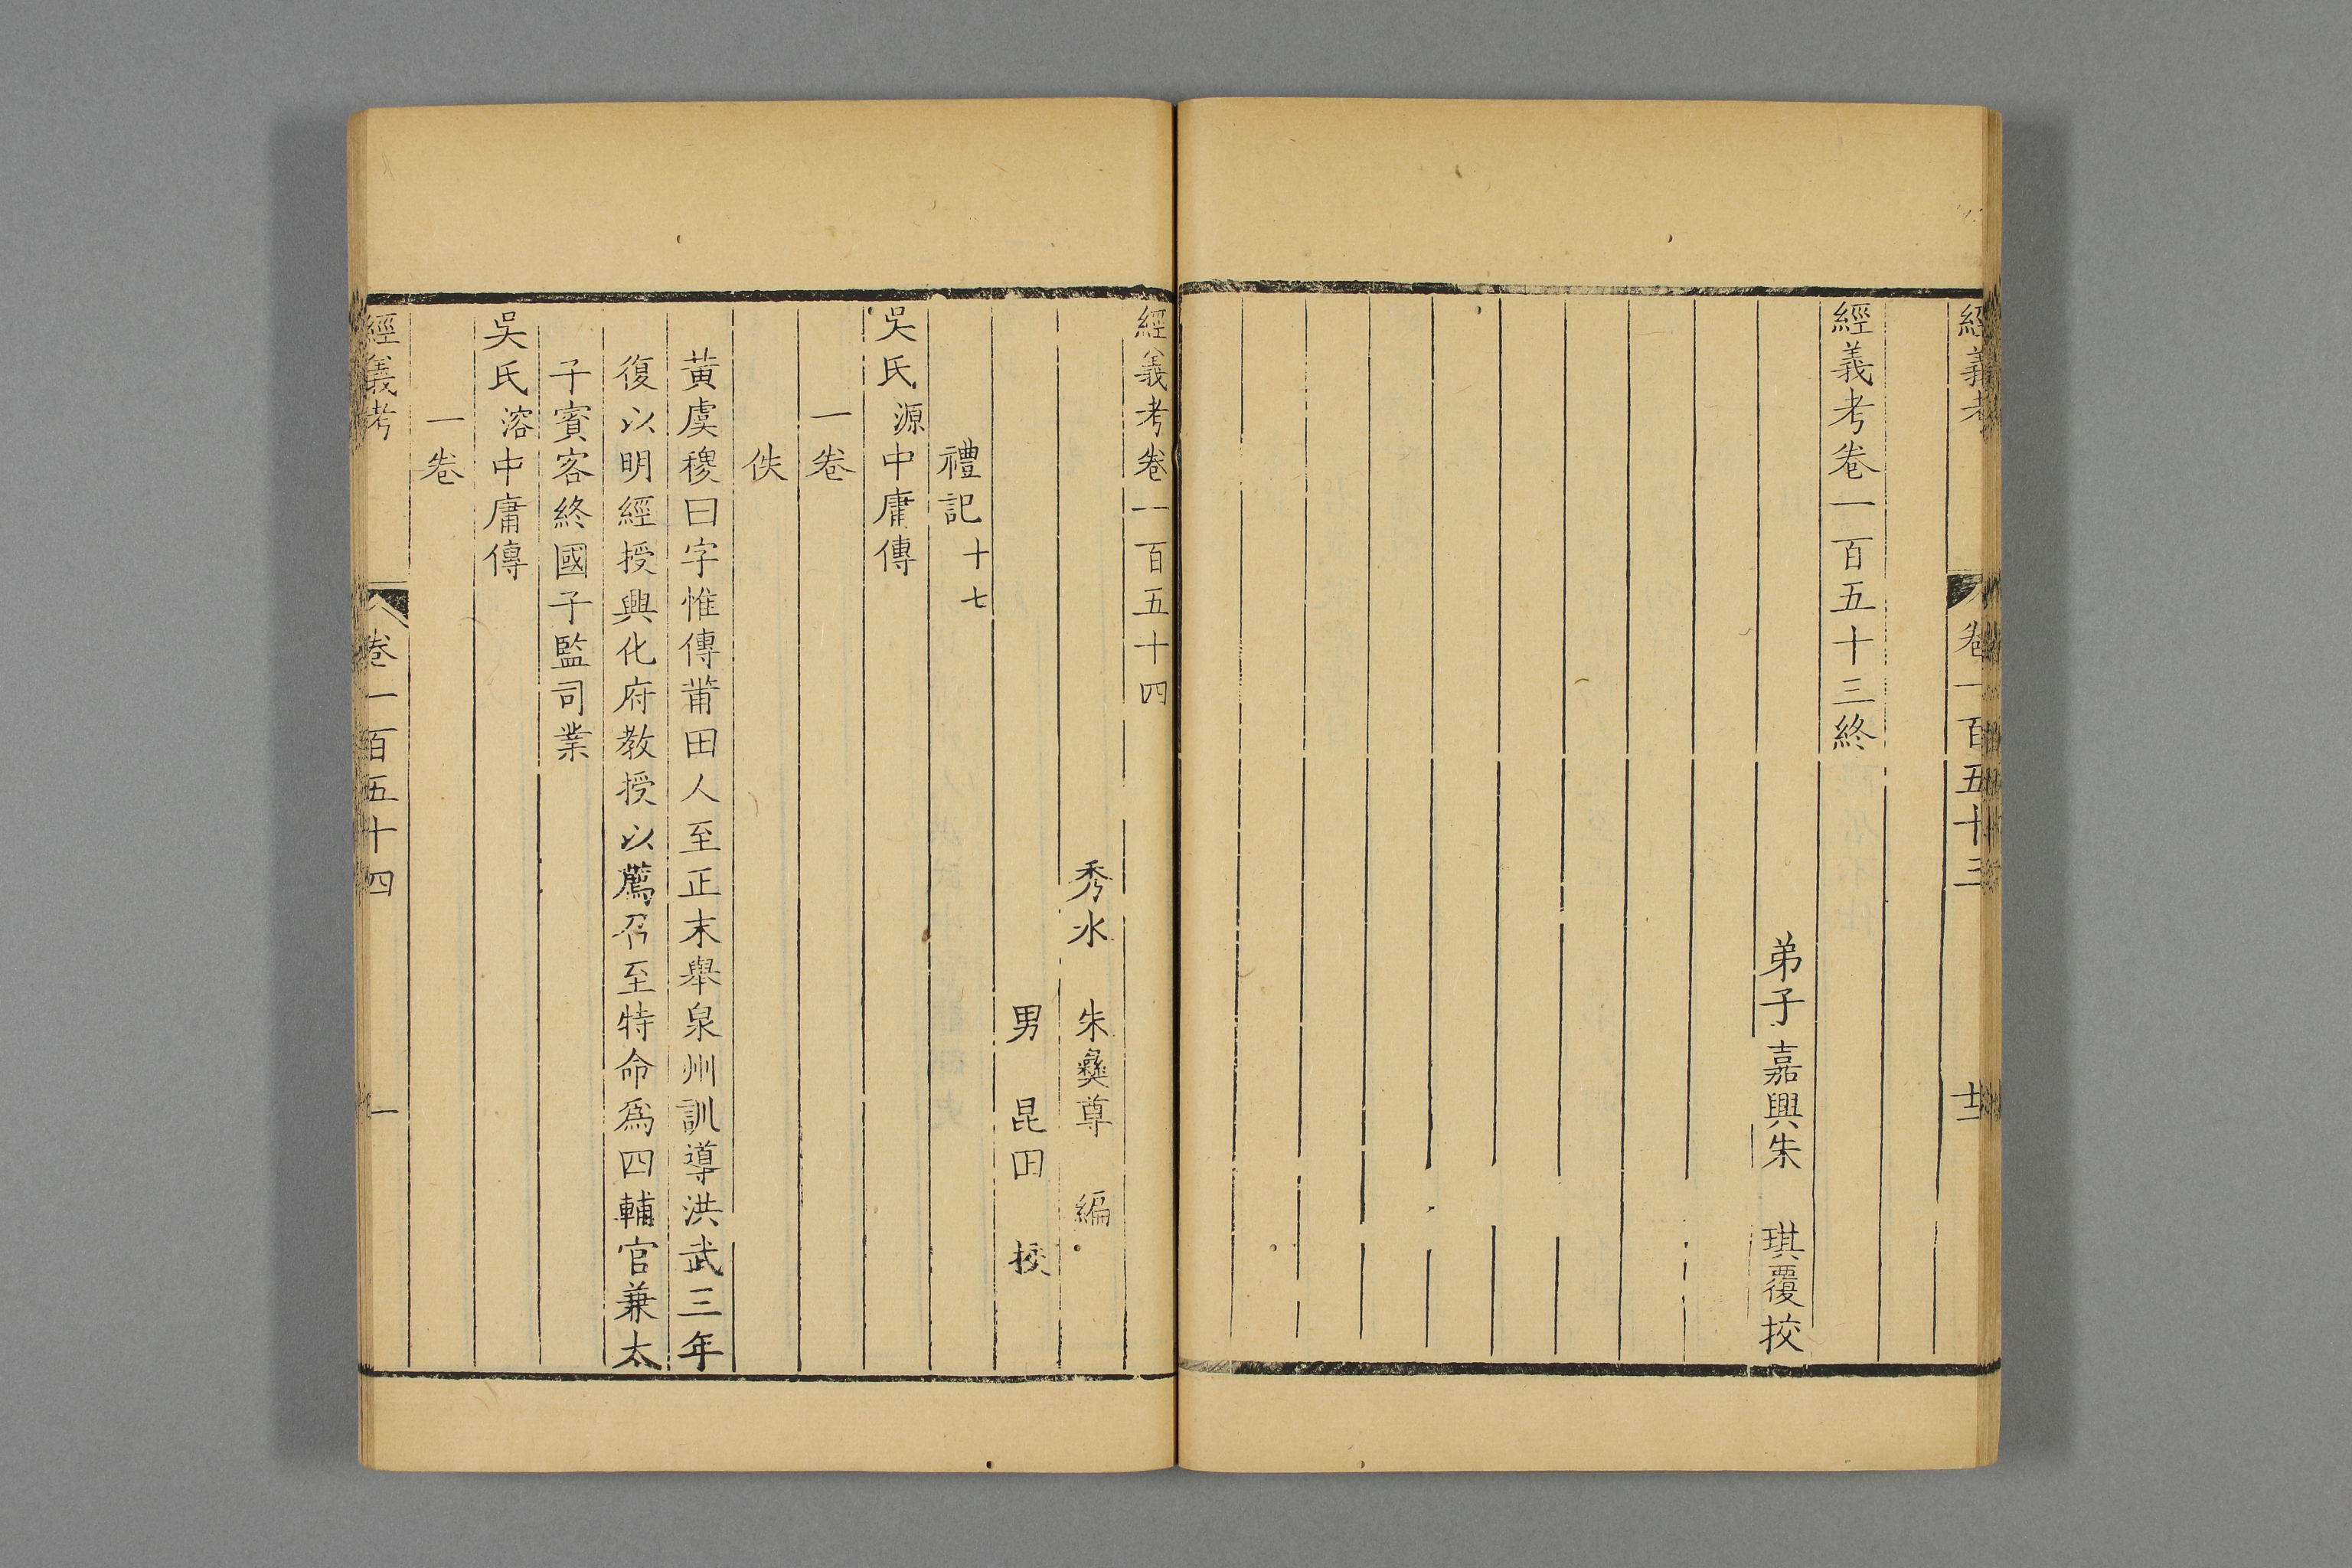 經義考 卷一百五十三 十二
經義考卷一百五十三終
弟子嘉興朱 琪覆挍
經義考卷一百五十四
秀水 朱彝尊 編
男 昆田 挍
禮記十七
吳氏源中庸傳
一卷
佚
黃虞稷曰字惟傳莆田人至正末舉泉州訓導洪武三年
復以明經授興化府教授以薦召至特命爲四輔官兼太
子賓客終國子監司業
吳氏溶中庸傳
一卷
經義考 卷一百五十四 一